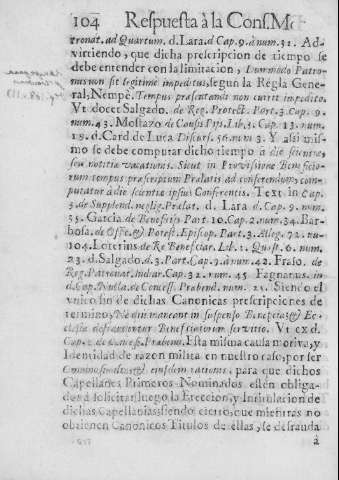 104 Respuesta à la Cons. Mo-
tronat. ad Quartum. d. Lara. d Cap. 9. à num. 31. Ad-
virtiendo, que dicha prescripcion de tiempo se
debe entender con la limitacion, Dummodo Patro-
nus non sit legitimè impeditus, segun la Regla Gene-
ral, Nempè. Tempus præsentandi non currit impedito.
Vt docet Salgado. de Reg. Protect. Part. 3. Cap. 9.
num. 43. Mostazo de Causis Pijs. Lib. 3. Cap. 13. num.
19. d. Card. de Luca Discurs. 56. num 3. Y assi mis-
mo se debe computar dicho tiempo à die scientiæ,
seu notitiæ vacationis. Sicut in Provissione Beneficio-
rum tempus præscriptum Prælatis ad conferendum, com-
putatur à die scientiæ ipsius Conferentis. Text in Cap.
3. de Supplend. neglig. Prælat. d. Lara d. Cap. 9. num.
35. Garcia de Beneficijs Part. 10. Cap. 2. num. 34. Bar-
bosa. de Offic. & Potest. Episcop. Part. 3. Alleg. 72. nu-
104. Loterius de Re Beneficiar. Lib. 1. Quæst. 6. num.
23. d. Salgado. d. 3. Part. Cap. 9. à num. 42. Fraso. de
Reg. Patronat. Indiar. Cap. 32. num. 45. Fagnanus. in
d. Cap. Nulla. de Concess. Præbend. num. 21. Siendo el
vnico fin de dichas Canonicas prescripciones de
termino, Ne diù maneant in suspenso Beneficia, & Ec-
clesiæ defraudentur Beneficiatorum servitio. Vt ex d.
Cap. 2. de Concess. Præbend. Esta misma causa motiva, y
Identidad de razon milita en nuestro caso, por ser
rationis, para que dichos
Capellanes Primeros Nominados estèn obliga-
dos à solicitar luego la Ereccion, y Institulacion de
dichas Capellanias, siendo cierto, que mientras no
obtienen Canonicos Titulos de ellas, se defrauda
à